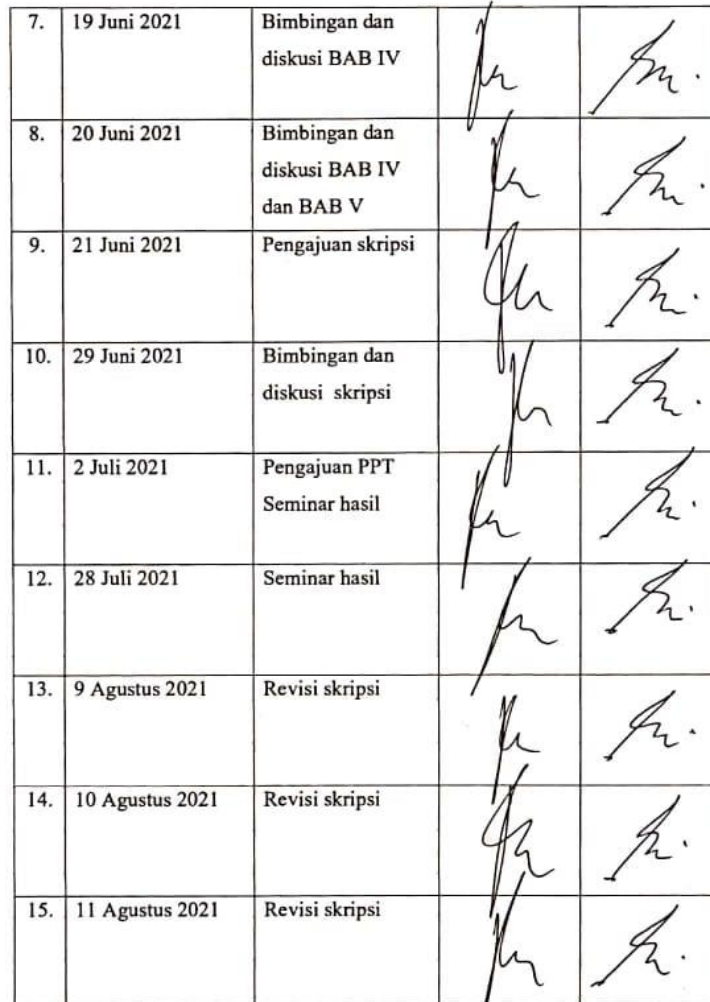 7. 19 Juni 2021 Bimbingan dan
diskusi BAB IV
8. 20 Juni 2021 Bimbingan dan
diskusi BAB IV
dan BAB V
9. 21 Juni 2021 Pengajuan skripsi
10. 29 Juni 2021 Bimbingan dan
diskusi skripsi
11. 2 Juli 2021 Pengajuan PPT
Seminar hasil
12. 28 Juli 2021 Seminar hasil
13. 9 Agustus 2021 Revisi skripsi
14. 10 Agustus 2021 Revisi skripsi
15. 11 Agustus 2021 Revisi skripsi